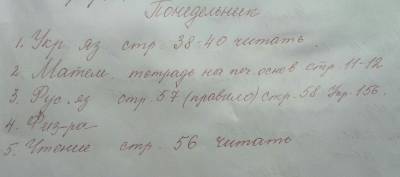 Понедельник
1. Укр яз стр 38-40 читать.
2 Матем. тетрадь на печ. основ стр. 11-12
3. Рус. яз стр. 57 (правило) стр. 58 Упр. 156.
4. Физ-ра
5. Чтение стр. 56 читать